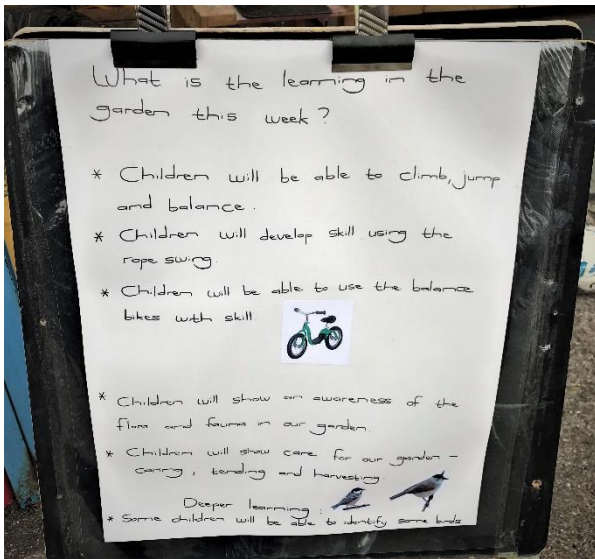 What is the learning in the
garden this week?
* Children will be able to climb, jump
and balance.
* Children will develop skill using the
rope swing.
* Children will be able to use the balance
bikes with skill
* Children will show an awareness of the
flora and fauna in our garden.
* Children will show care for our garden -
caring, tending and harvesting.
Deeper learning:
* Some children will be able to identify some birds